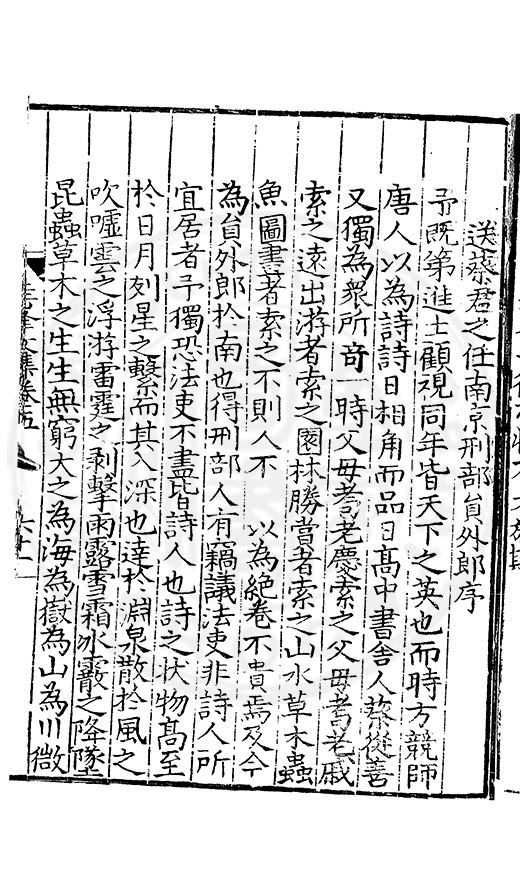 送蔡君之任南京刑部員外郎序
予既第進士顧視同年皆天下之英也而時方競師
唐人以為詩詩日相角而品日高中書舍人蔡從善
又獨為衆所奇一時父母耆老慶索之父母耆老戚
索之遠出游者索之園林勝嘗者索之山水草木蟲
魚圖畫者索之不則人不 以為絕卷不貴焉及今
為員外郎於南也得刑部人有竊議法吏非詩人所
宜居者予獨恐法吏不盡皆詩人也詩之狀物高至
於日月列星之繫而其入深也達於淵泉散於風之
吹噓雲之浮游雷霆之剥擊雨露雪霜冰霰之降墜
昆蟲草木之生生無窮大之為海為嶽為山為川微
文集卷五